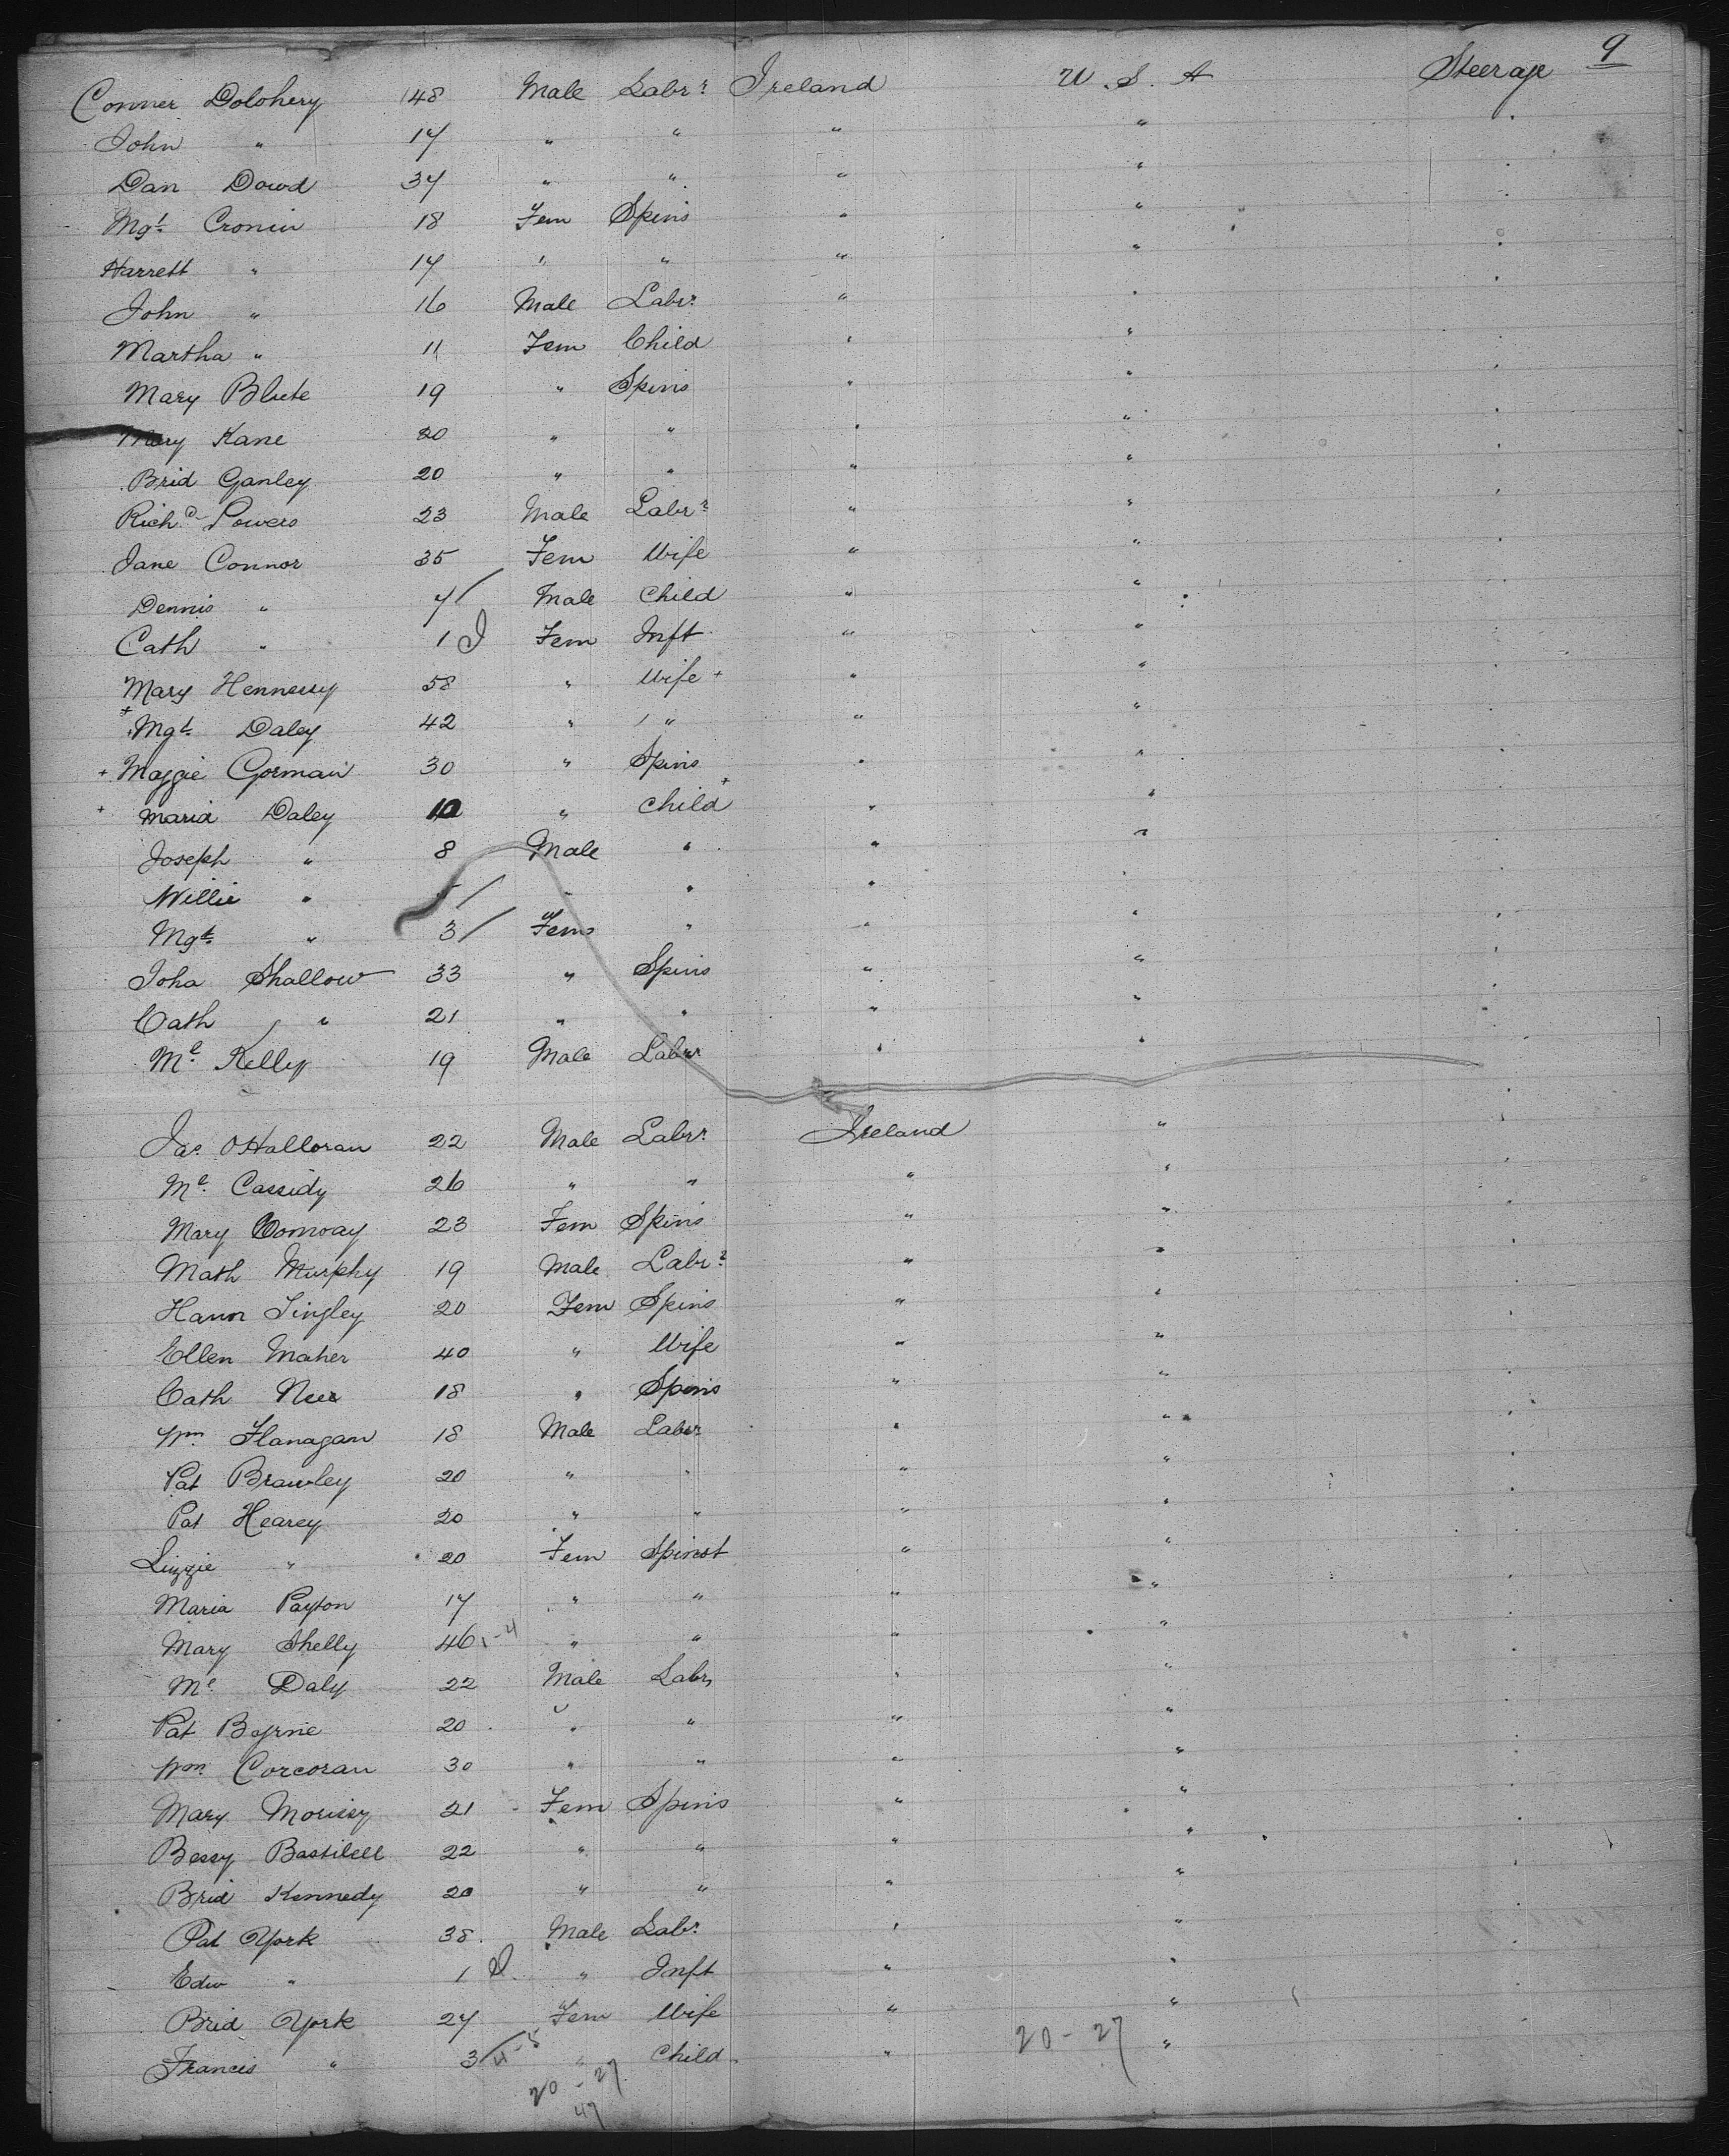 9
Conner Dolohery 48 Male Labr. Ireland U.S.A Steerage
John " 17 " " " "
Dan Dowd 34 " " " "
Mgt. Cronin 18 Fem Spins " "
Harrett " 17 " " " "
John " 16 Male Labr. " "
Martha " 11 Fem Child " "
Mary Blute 19 " Spins " "
Mary Kane 20 " " " "
Brid Ganley 20 " " " "
Richd. Powers 23 Male Labr. " "
Jane Connor 35 Fem Wife " "
Dennis " 7/ Male Child " "
Cath " 1 Fem Inft. " "
Mary Hennessy 58 " Wife + " "
+ Mgt. Daley 42 " " " "
+ Maggie Gorman 30 " Spins " "
+ Maria Daley 10 " Child + " "
Joseph " 8 Male " " "
Willie " 5/ " " " "
Mgt. " 3/ Fem " " "
Joha Shallow 33 " Spins " "
Cath " 21 " " " "
Ml. Kelly 19 Male Labr " "
Jas. OHalloran 22 Male Labr. Ireland "
Ml. Cassidy 26 " " " "
Mary Conway 23 Fem Spins " "
Math Murphy 19 Male Labr. " "
Hann Tingley 20 Fem Spins " "
Ellen Maher 40 " Wife " "
Cath 18 " Spins " "
Wm. Flanagan 18 Male Labr " "
Pat Brawley 20 " " " "
Pat Hearey 20 " " " "
Lizzie " 20 Fem Spinst " "
Maria Payton 17 " " " "
Mary Shelly 46 " " " "
Ml. Daly 22 Male Labr " "
Pat Byrne 20 " " " "
Wm. Corcoran 30 " " " "
Mary Morissy 21 Fem Spins " "
Bessy Bastilell 22 " " " "
Brid Kennedy 20 " " " "
Pat York 38 Male Labr. " "
Edw " 1 " Inft " "
Brid York 27 Fem Wife " "
Francis " 3/ " Child " 20-27 "
20-27
47